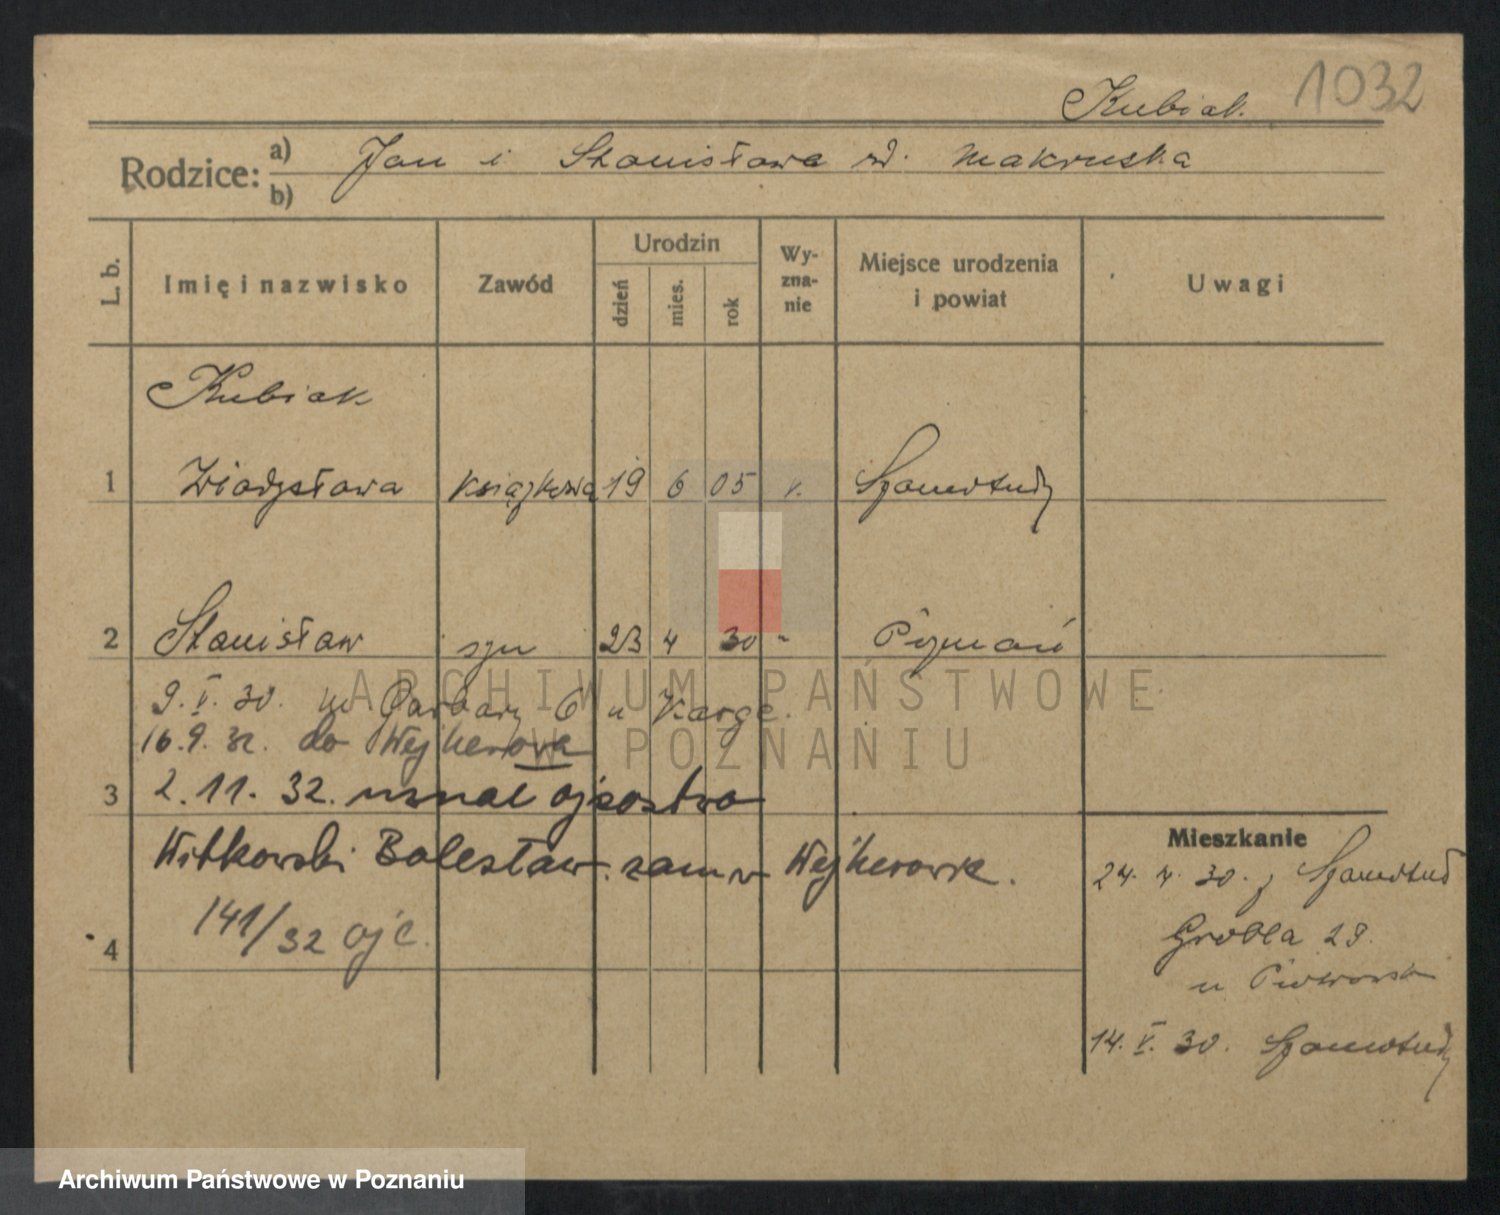 Kubiak.
1032
Rodzice: a) Jan i Stanisława zd. Makruska
b)
L. b.
Imię i nazwisko
Zawód
Urodzin
dzień
mies.
rok
Wy-
zna-
nie
Miejsce urodzenia
i powiat
Uwagi
Kubiak
1 Władysława książkowa 19 6 05 r. Szamotuły
2 Stanisław syn 23 4 30 " Poznań
9. V. 30. Garbary 6 u Karge.
16.9.32. do Wejherowa
3 2.11.32. uznał ojcostwo
Witkowski Bolesław zam w Wejherowie.
4 141/32 ojc.
Mieszkanie
24. 4. 30. z Szamotuł
Grobla 29.
u
14. V. 30. Szamotuły
ARCHIWUM PAŃSTWOWE
W POZNANIU
Archiwum Państwowe w Poznaniu